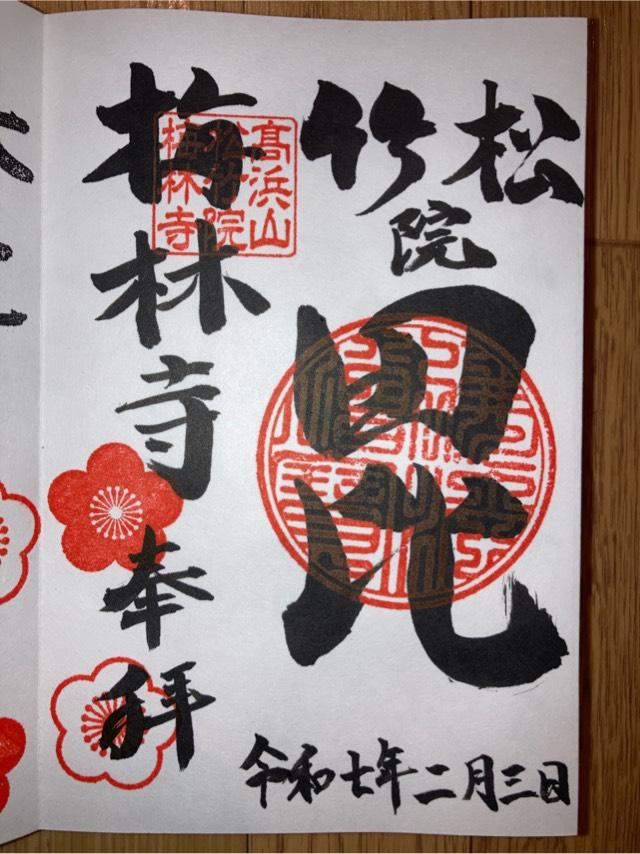 松竹院
毘
令和七年二月三日
髙浜山
松竹院
梅林寺
梅林寺
奉拝